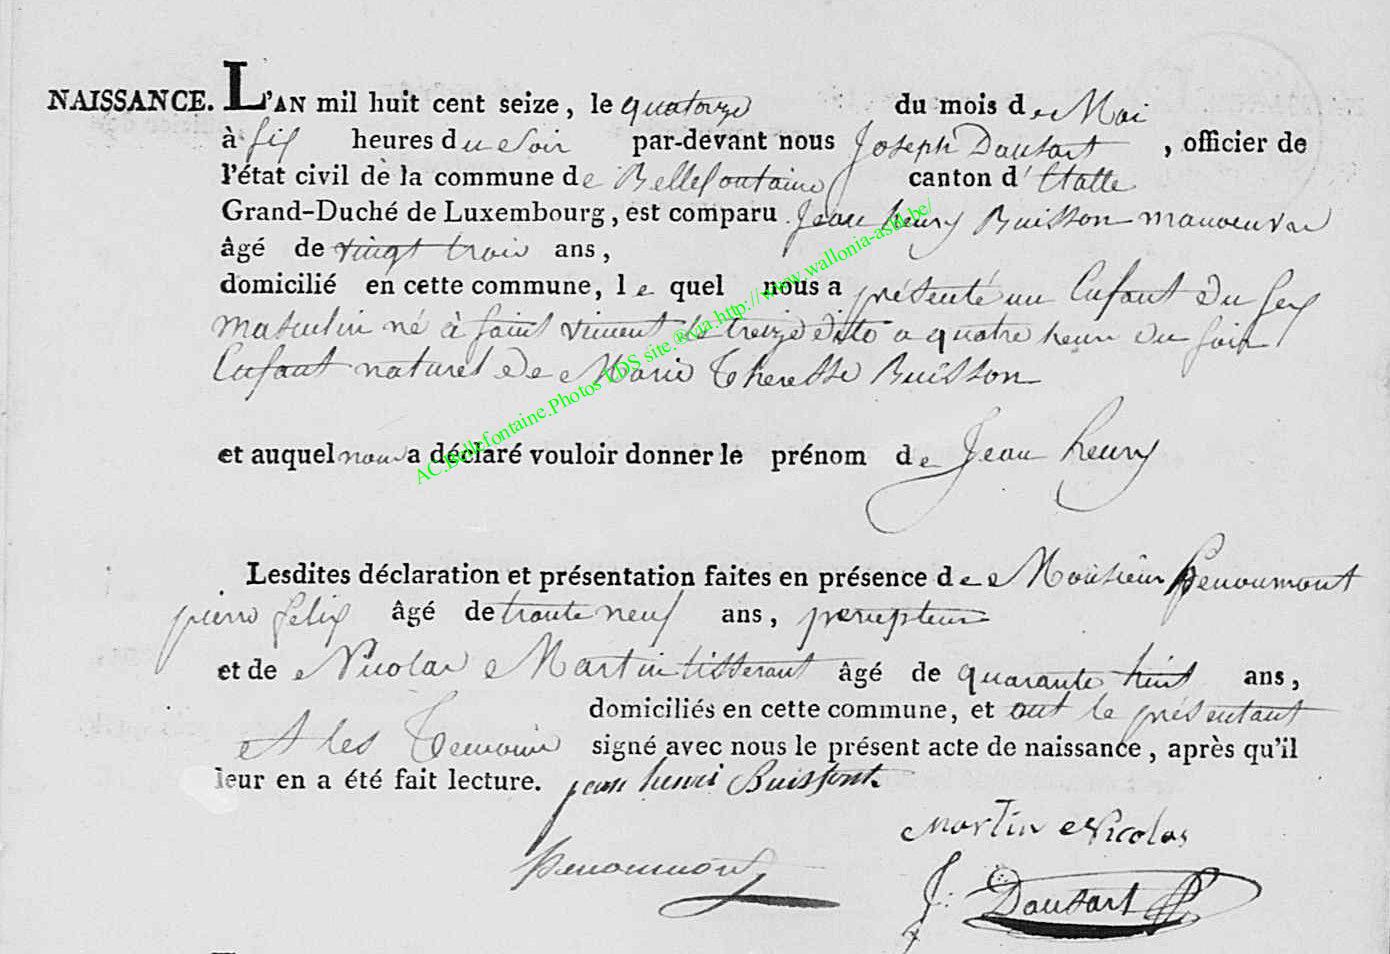 NAISSANCE. L'AN mil huit cent seize, le quatorze du mois de Mai
à six heures du Soir par-devant nous Joseph Dausart, officier de
l'état civil de la commune de Bellefontaine canton d'Etalle
Grand-Duché de Luxembourg, est comparu Jean henry Buisson manoeuvre
âgé de vingt trois ans,
domicilié en cette commune, le quel nous a présenté un Enfant du sex
masculin né à saint vincent le treize dito a quatre heur du soir
Enfant naturel de Marie Theresse Buisson
et auquel nous a déclaré vouloir donner le prénom de Jean henry
Lesdites déclaration et présentation faites en présence de Monsieur
pierre felix âgé de trante neuf ans, percepteur
et de Nicolas Martin tisserant âgé de quarante huit ans,
domiciliés en cette commune, et ont le présentant
et les Temoins signé avec nous le présent acte de naissance, après qu'il
leur en a été fait lecture. jean henri Buissont.
Martin Nicolas
J: Dausart
AC.Bellefontaine.Photos LDS site.®via.http://www.wallonia-asbl.be/